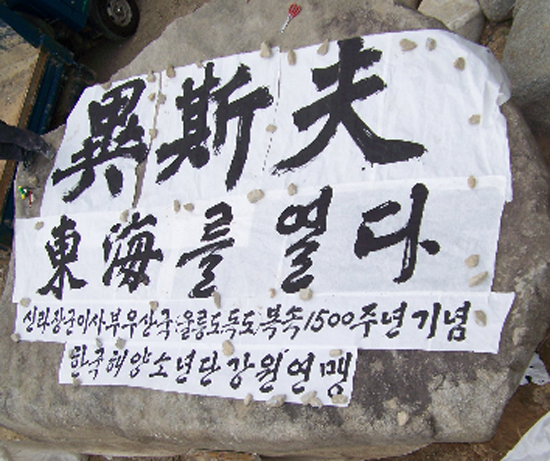 異斯夫
東海를 열다
신라장군이사부우산국(울릉도독도)복속1500주년기념
한국해양소년단강원연맹